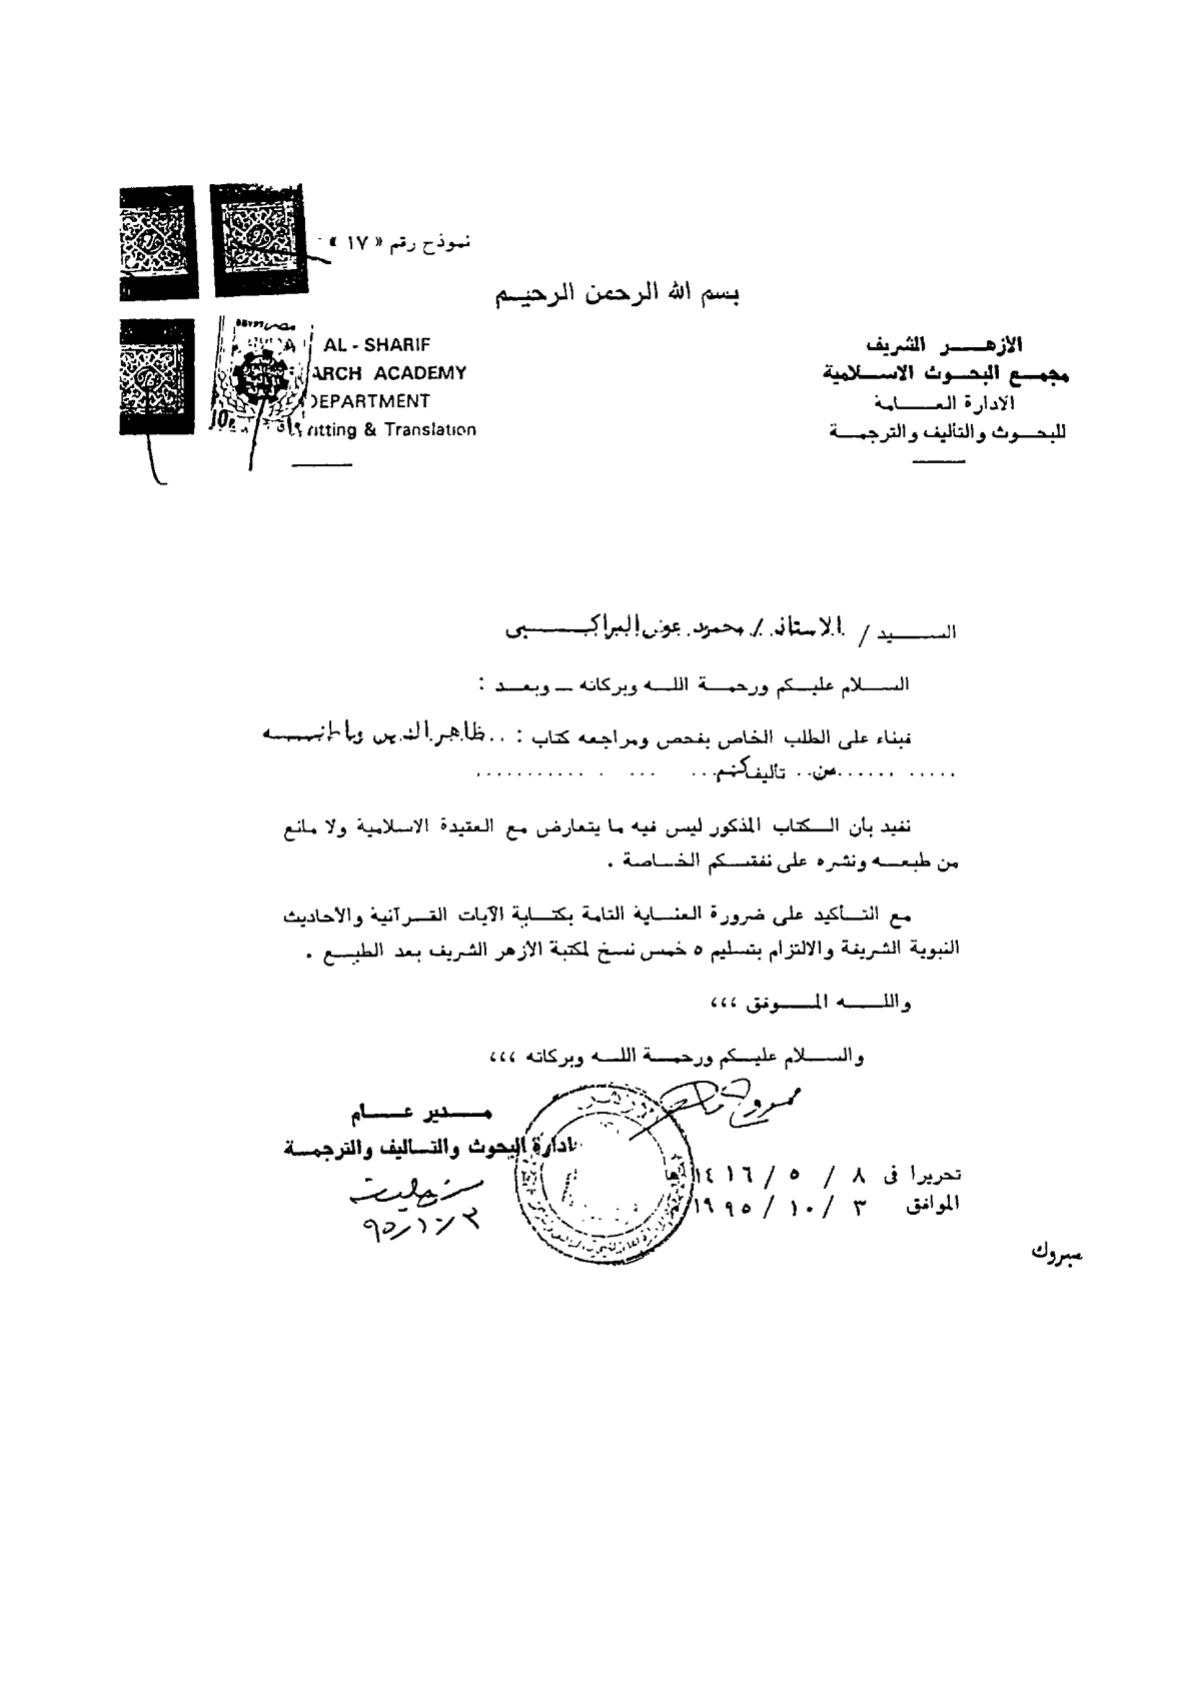 نموذج رقم « ١٧ »
بسم الله الرحمن الرحيم
AL - SHARIF
ARCH ACADEMY
DEPARTMENT
ritting & Translation
الأزهر الشريف
مجمع البحوث الاسلامية
الادارة العامة
للبحوث والتأليف والترجمة
EGYPT مصر
السيد / الاستاذ / محمود عوض المراكبى
السلام عليكم ورحمة الله وبركاته ــ وبعد :
فبناء على الطلب الخاص بفحص ومراجعه كتاب : .. ظاهر الدين وباطنه
..... ...... من .. تأليفكم ... ... . ...........
نفيد بأن الكتاب المذكور ليس فيه ما يتعارض مع العقيدة الاسلامية ولا مانع
من طبعه ونشره على نفقتكم الخاصة .
مع التأكيد على ضرورة العناية التامة بكتابة الآيات القرآنية والأحاديث
النبوية الشريفة والالتزام بتسليم ٥ خمس نسخ لمكتبة الأزهر الشريف بعد الطبع .
والله الموفق ،،،
والسلام عليكم ورحمة الله وبركاته ،،،
مدير عام
ادارة البحوث والتاليف والترجمة
٩٥/١٠/٣
تحريرا فى ٨ / ٥ / ١٤١٦ هـ
الموافق ٣ / ١٠ / ١٩٩٥ م
مبروك